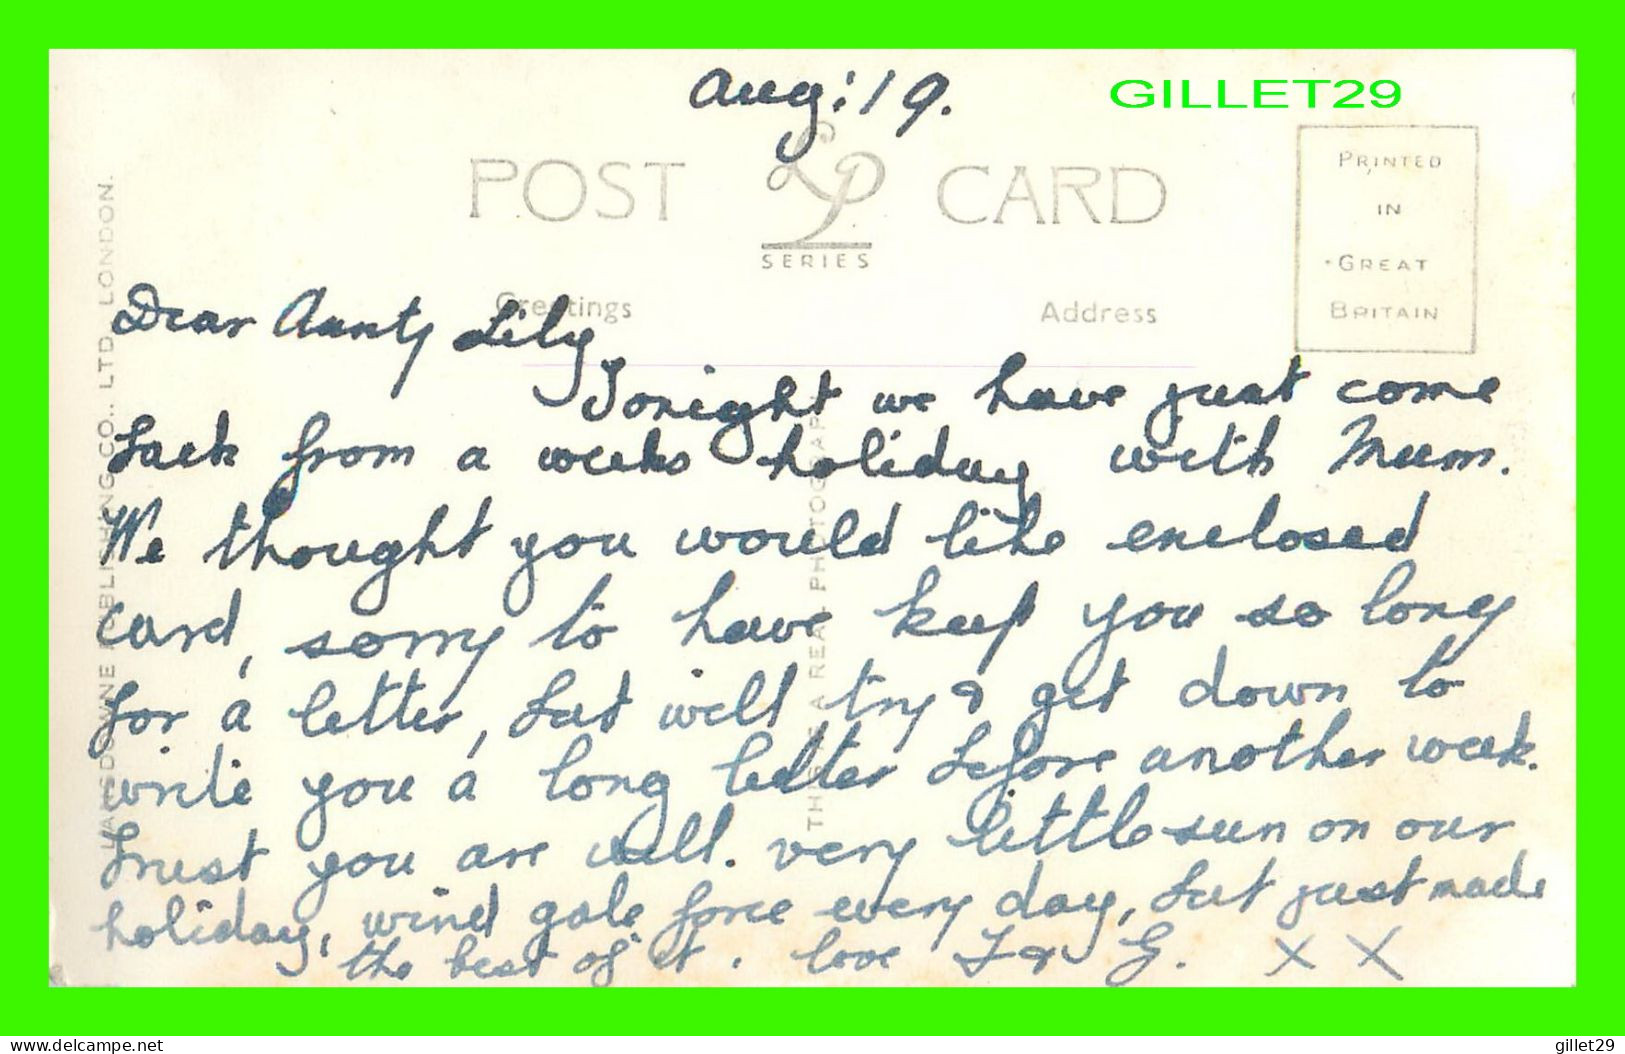 Aug: 19.
GILLET29
POST CARD
LP
SERIES
PRINTED
IN
GREAT
BRITAIN
Greetings
Address
LANSDOWNE PUBLISHING CO., LTD., LONDON.
THIS IS A REAL PHOTOGRAPH
Dear Aunty Lily
Tonight we have just come
back from a weeks holiday with Mum.
We thought you would like enclosed
card, sorry to have keep you so long
for a letter, but will try & get down to
write you a long letter before another week.
Trust you are well. very little sun on our
holiday, wind gale force every day, but just made
the best of it. love I & G. X X
www.delcampe.net
gillet29